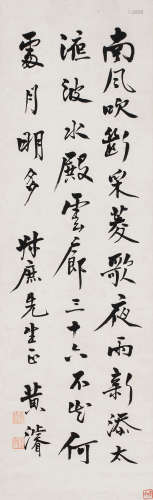 南风吹断采菱歌夜雨新添太
液波水殿云廊三十六不知何
处月明多 叔庶先生正 黄濬